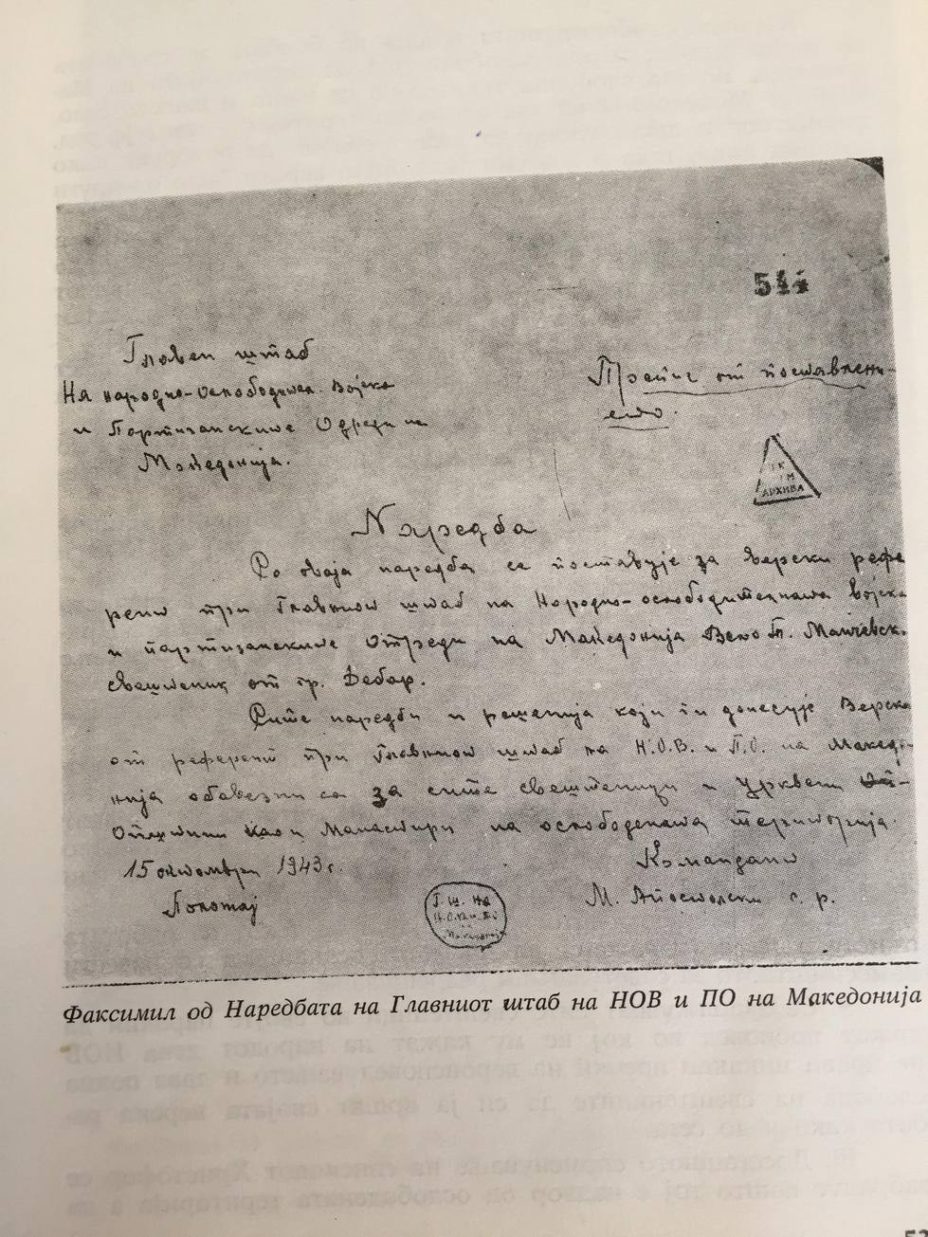 544
Главен штаб
На народно-ослободител. војска
и Партизанските Одреди на
Македонија.
Препис от поставлени-
ето.
ЦК
КМ
АРХИВА
Наредба
Со оваја наредба се поставује за верски рефе
рент при Главниот штаб на Народно-ослободителната војска
и партизанските отреди на Македонија Вељо Т. Манчевск.
свештеник от гр. Дебар.
Сите наредби и решенија који ги донесује Верски
от референт при главниот штаб на Н.О.В. и П.О. на Македо-
нија обавезни са за сите свештеници и црквени
Општини као и Манастири на ослободената територија.
15 октомври 1943 г.
Командант
М. Апостолски с. р.
Г. Ш. на
Македонија
Факсимил од Наредбата на Главниот штаб на НОВ и ПО на Македонија